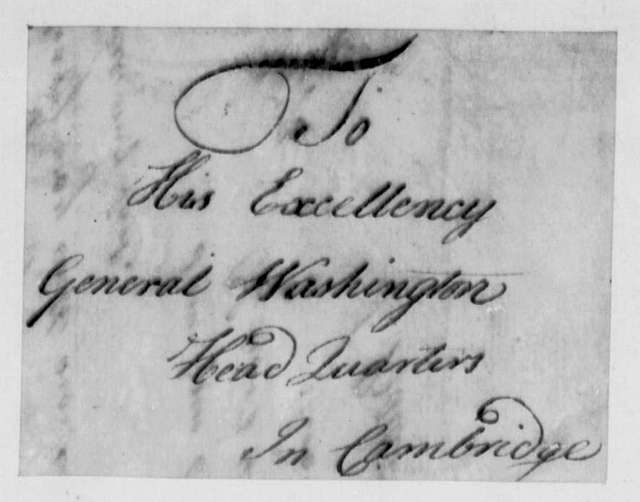 To
His Excellency
General Washington
Head Quarters
In Cambridge